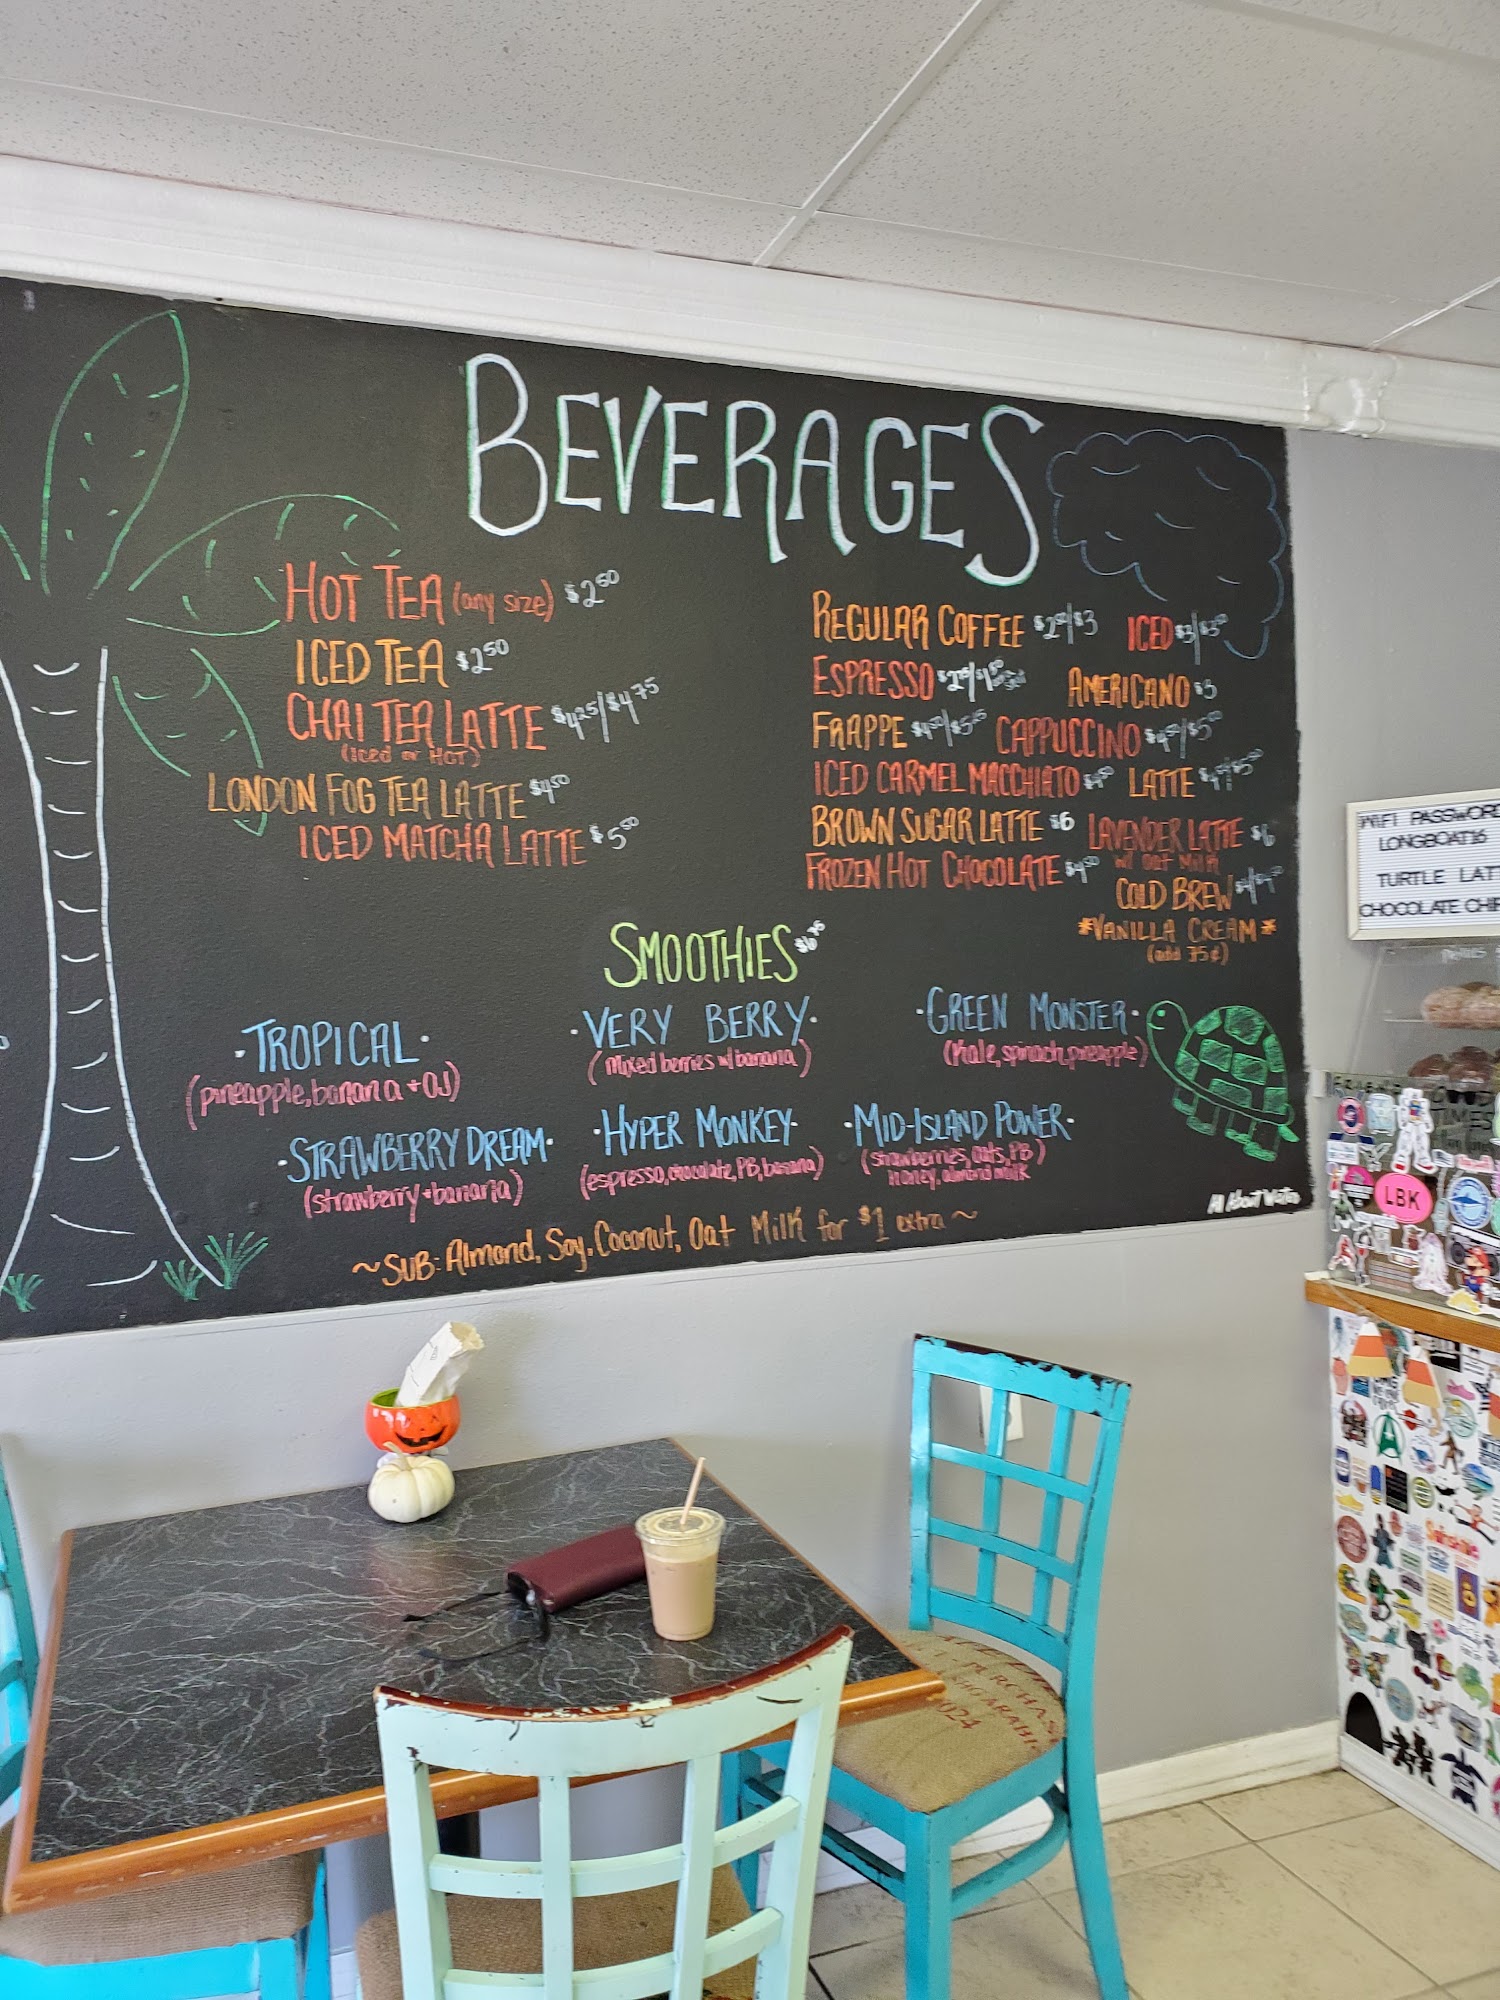 BEVERAGES
HOT TEA (any size) $2.50
ICED TEA $2.50
CHAI TEA LATTE $4.25/$4.75
(iced or HOT)
LONDON FOG TEA LATTE $4.50
ICED MATCHA LATTE $5.50
REGULAR COFFEE $2.50/$3 ICED $3/$3.50
ESPRESSO AMERICANO $3
FRAPPE CAPPUCCINO
ICED CARMEL MACCHIATO $4.50 LATTE
BROWN SUGAR LATTE $6 LAVENDER LATTE $6
w/ oat milk
FROZEN HOT CHOCOLATE $4.50
COLD BREW
*VANILLA CREAM*
(add 75¢)
SMOOTHIES $6.75
·TROPICAL·
(pineapple, banana + OJ)
·VERY BERRY·
(Mixed berries w/ banana)
·GREEN MONSTER·
(Kale, spinach, pineapple)
·STRAWBERRY DREAM·
(strawberry + banana)
·HYPER MONKEY·
(espresso, chocolate, PB, banana)
·MID-ISLAND POWER·
(strawberries, oats, PB)
Honey, almond milk
~SUB: Almond, Soy, Coconut, Oat Milk for $1 extra~
WIFI PASSWORD
LONGBOAT16
TURTLE LATT
CHOCOLATE CHIP
TIMES
LBK
2024